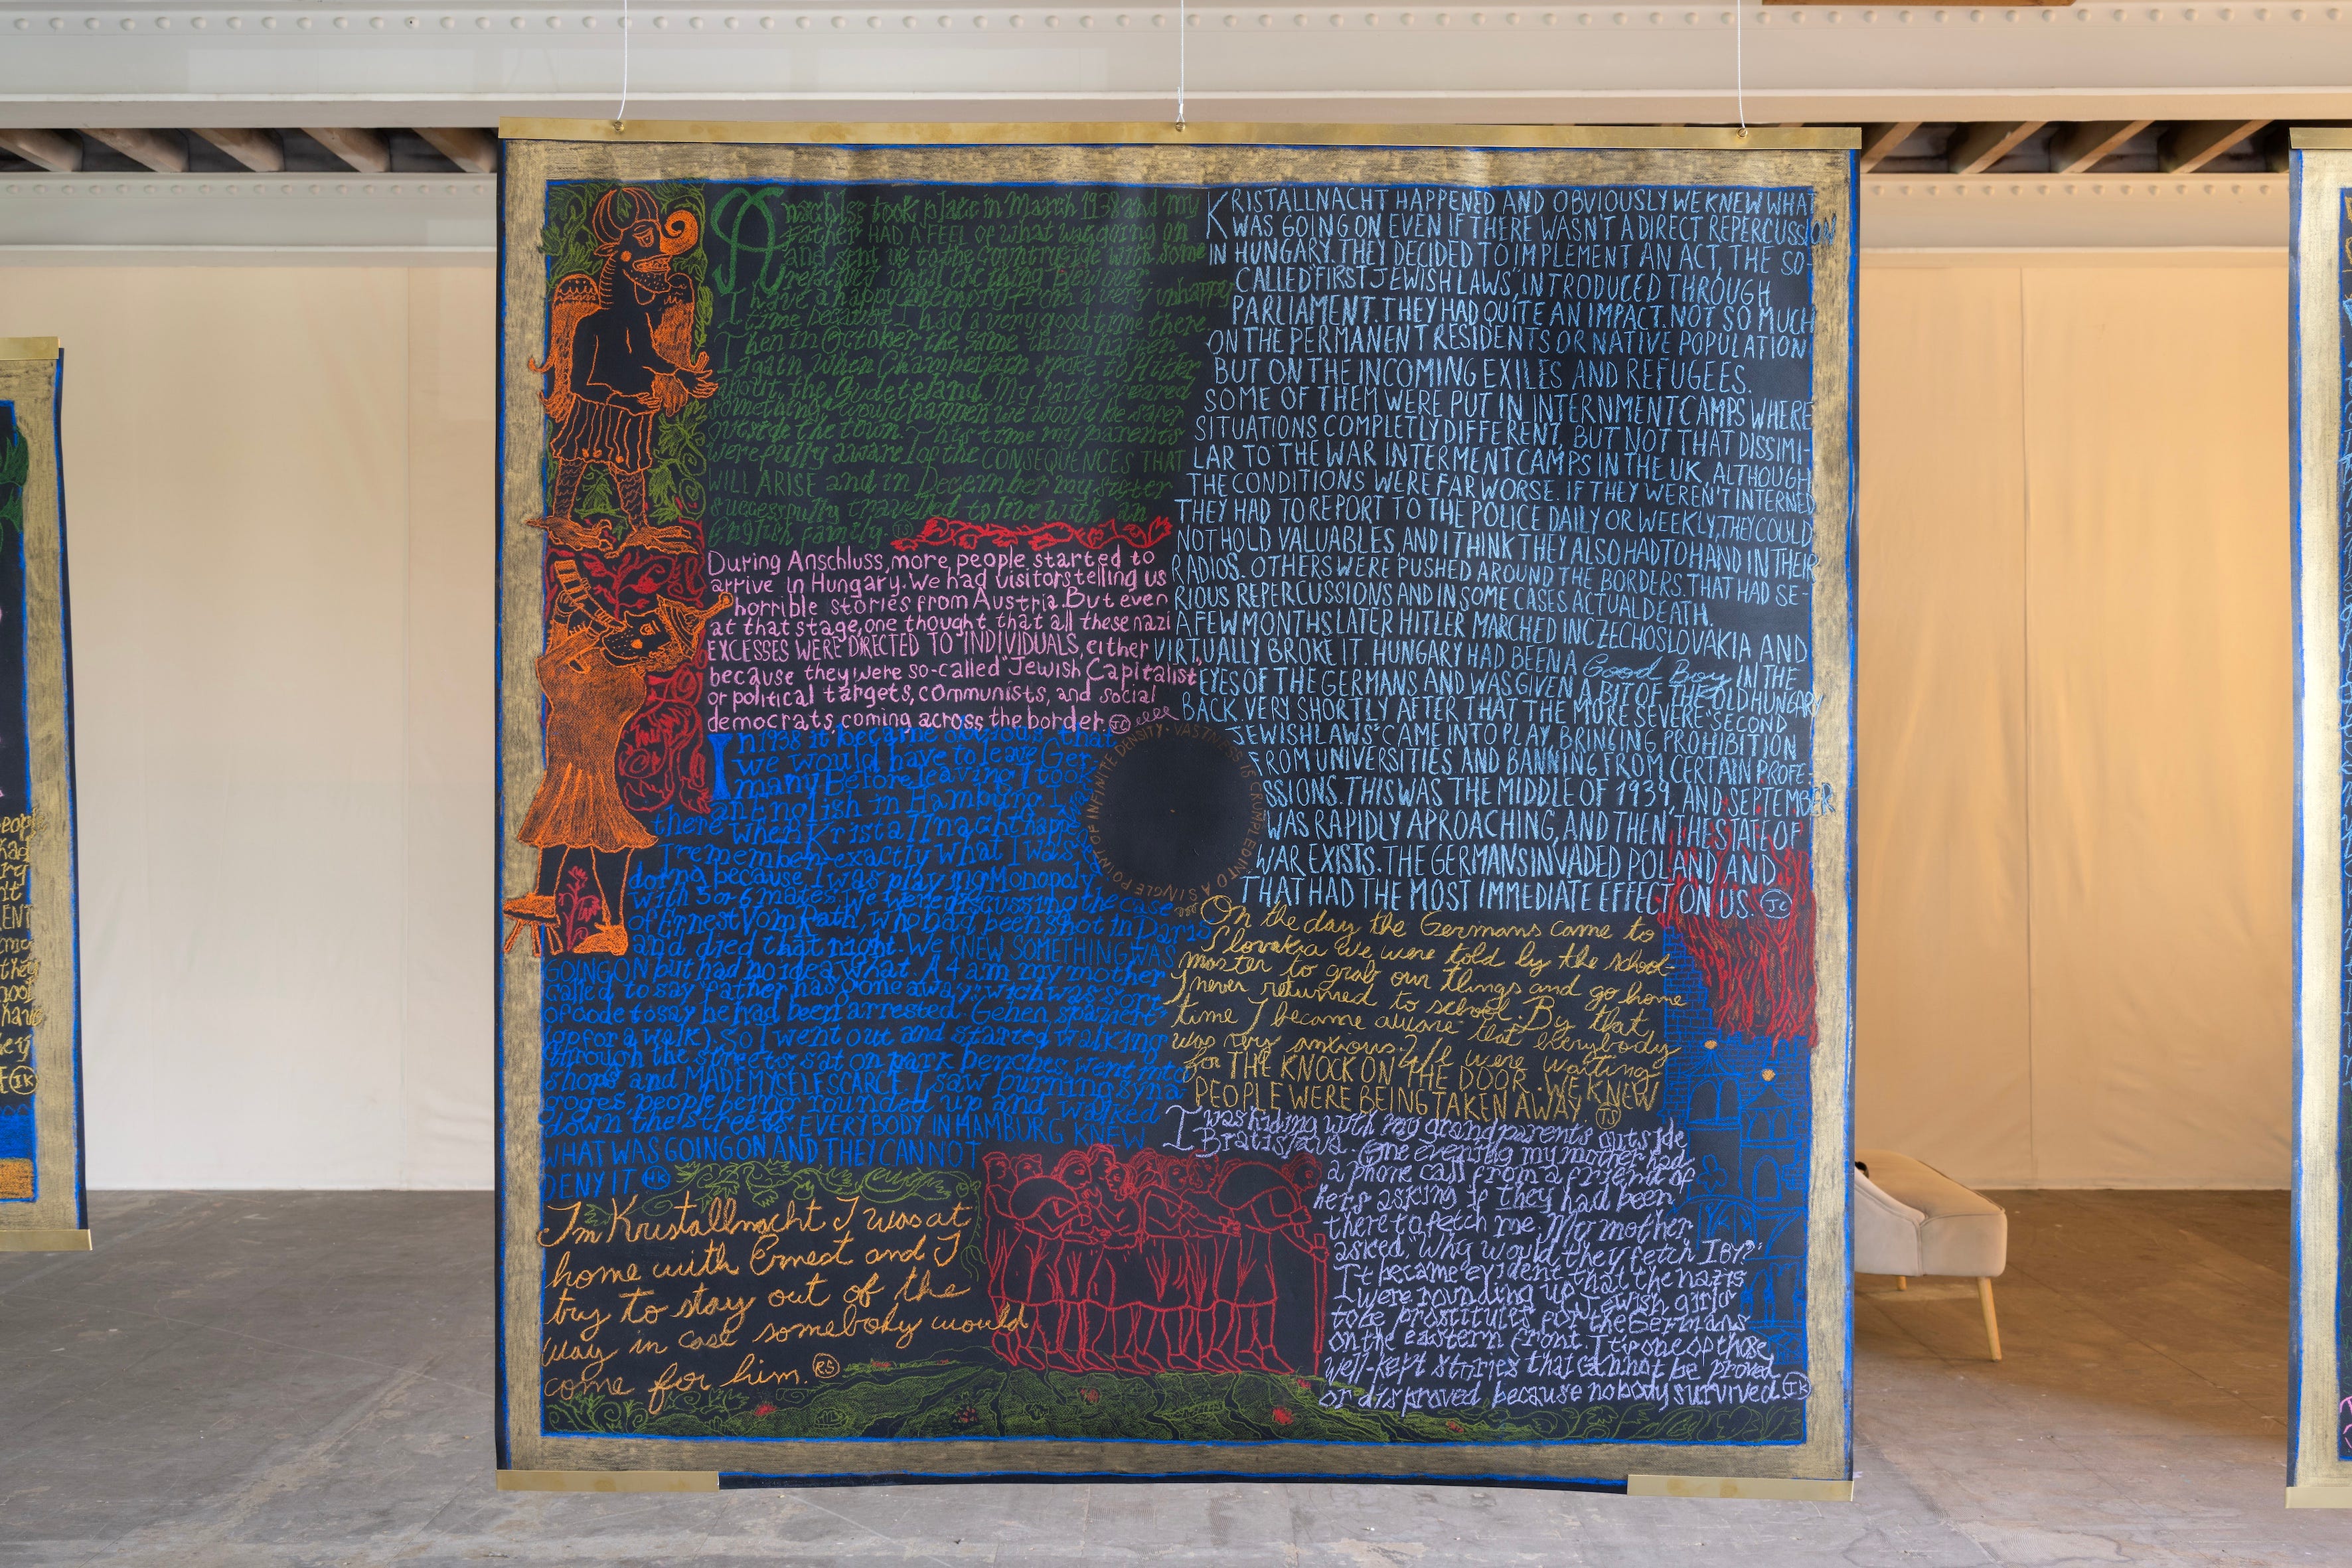 Anschluss took place in March 1938 and my
Father HAD A FEEL of what was going on
and sent us to the countryside with some
relatives until the things got over.
I have a happy memory from a very unhappy
time because I had a very good time there.
Then in October the same thing happen
again when Chamberlain spoke to Hitler
about the Sudeteland. My father feared
something would happen we would be safer
outside the town. This time my parents
were fully aware of the CONSEQUENCES THAT
WILL ARISE and in December my sister
successfully travelled to live with an
English family.
During Anschluss, more people started to
arrive in Hungary. We had visitors telling us
horrible stories from Austria. But even
at that stage, one thought that all these nazi
EXCESSES WERE DIRECTED TO INDIVIDUALS, either
because they were so-called "Jewish Capitalist"
or political targets, communists, and social
democrats, coming across the border. JC
In 1938 it became obvious that
we would have to leave Ger-
many. Before leaving I took
an English in Hamburg. I
there when Kristallnacht happe
I remember exactly what I was
doing because I was playing Monopoly
with 5 or 6 mates. We were discussing the case
of Ernest Vom Rath, who had been shot in Paris
and died that night. We KNEW SOMETHING WAS
GOING ON but had no idea what. A 4 am my mother
called to say father has gone away: wich was sort
of code to say he had been arrested. Gehen spaziere
(go for a walk). So I went out and started walking
through the streets, sat on park benches, went into
shops and MADE MYSELF SCARCE. I saw burning syna
goges, people being rounded up and walked
down the streets. EVERYBODY IN HAMBURG KNEW
WHAT WAS GOING ON AND THEY CANNOT
DENY IT HK
In Kristallnacht I was at
home with Ernest and I
try to stay out of the
way in case somebody would
come for him. RS
KRISTALLNACHT HAPPENED AND OBVIOUSLY WE KNEW WHAT
WAS GOING ON EVEN IF THERE WASN'T A DIRECT REPERCUSSION
IN HUNGARY. THEY DECIDED TO IMPLEMENT AN ACT, THE SO-
CALLED "FIRST JEWISH LAWS", INTRODUCED THROUGH
PARLIAMENT. THEY HAD QUITE AN IMPACT. NOT SO MUCH
ON THE PERMANENT RESIDENTS OR NATIVE POPULATION
BUT ON THE INCOMING EXILES AND REFUGEES.
SOME OF THEM WERE PUT IN INTERNMENT CAMPS WHERE
SITUATIONS COMPLETLY DIFFERENT, BUT NOT THAT DISSIMI-
LAR TO THE WAR INTERMENT CAMPS IN THE UK, ALTHOUGH
THE CONDITIONS WERE FAR WORSE. IF THEY WEREN'T INTERNED
THEY HAD TO REPORT TO THE POLICE DAILY OR WEEKLY, THEY COULD
NOT HOLD VALUABLES, AND I THINK THEY ALSO HAD TO HAND IN THEIR
RADIOS. OTHERS WERE PUSHED AROUND THE BORDERS. THAT HAD SE-
RIOUS REPERCUSSIONS AND IN SOME CASES ACTUAL DEATH.
A FEW MONTHS LATER HITLER MARCHED IN CZECHOSLOVAKIA AND
VIRTUALLY BROKE IT. HUNGARY HAD BEEN A Good Boy IN THE
EYES OF THE GERMANS AND WAS GIVEN A BIT OF THE OLD HUNGARY
BACK. VERY SHORTLY AFTER THAT THE MORE SEVERE "SECOND
JEWISH LAWS" CAME INTO PLAY, BRINGING PROHIBITION
FROM UNIVERSITIES AND BANNING FROM CERTAIN PROFE-
SSIONS. THIS WAS THE MIDDLE OF 1939, AND SEPTEMBER
WAS RAPIDLY APROACHING, AND THEN THE STATE OF
WAR EXISIS. THE GERMANS INVADED POLAND AND
THAT HAD THE MOST IMMEDIATE EFFECT ON US. JC
VASTNESS IS CRUMPLED INTO A SINGLE POINT OF INFINITE DENSITY.
On the day the Germans came to
Slovakia we were told by the school-
master to grab our things and go home
I never returned to school. By that
time I became aware that everybody
was very anxious. We were waiting
for THE KNOCK ON THE DOOR. WE KNEW
PEOPLE WERE BEING TAKEN AWAY.
I was hiding with my grandparents outside
Bratislava. One evening my mother had
a phone call from a friend of
hers asking if they had been
there to fetch me. My mother
asked "Why would they fetch IBY?"
It became evident that the nazis
were rounding up Jewish girls
to be prostitutes for the Germans
on the eastern front. It is one of those
well-kept stories that cannot be proved
or disproved because nobody survived. IK